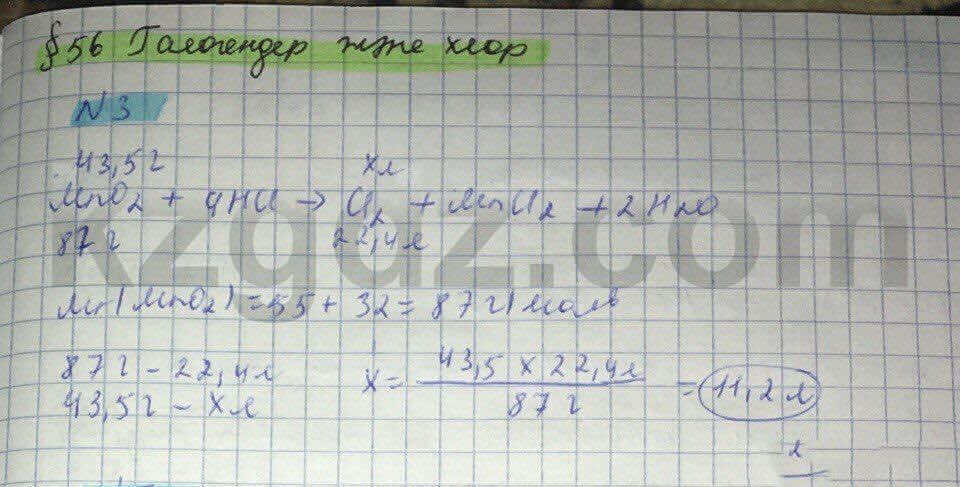 §56 Галогендер және хлор
N3
43,5г хл
MnO2 + 4HCl → Cl2 + MnCl2 + 2H2O
87г 22,4л
kzgdz.com
Mr(MnO2) = 55 + 32 = 87 г/моль
87г – 22,4л
43,5г – хл
x = 43,5 x 22,4л / 87г = 11,2 л